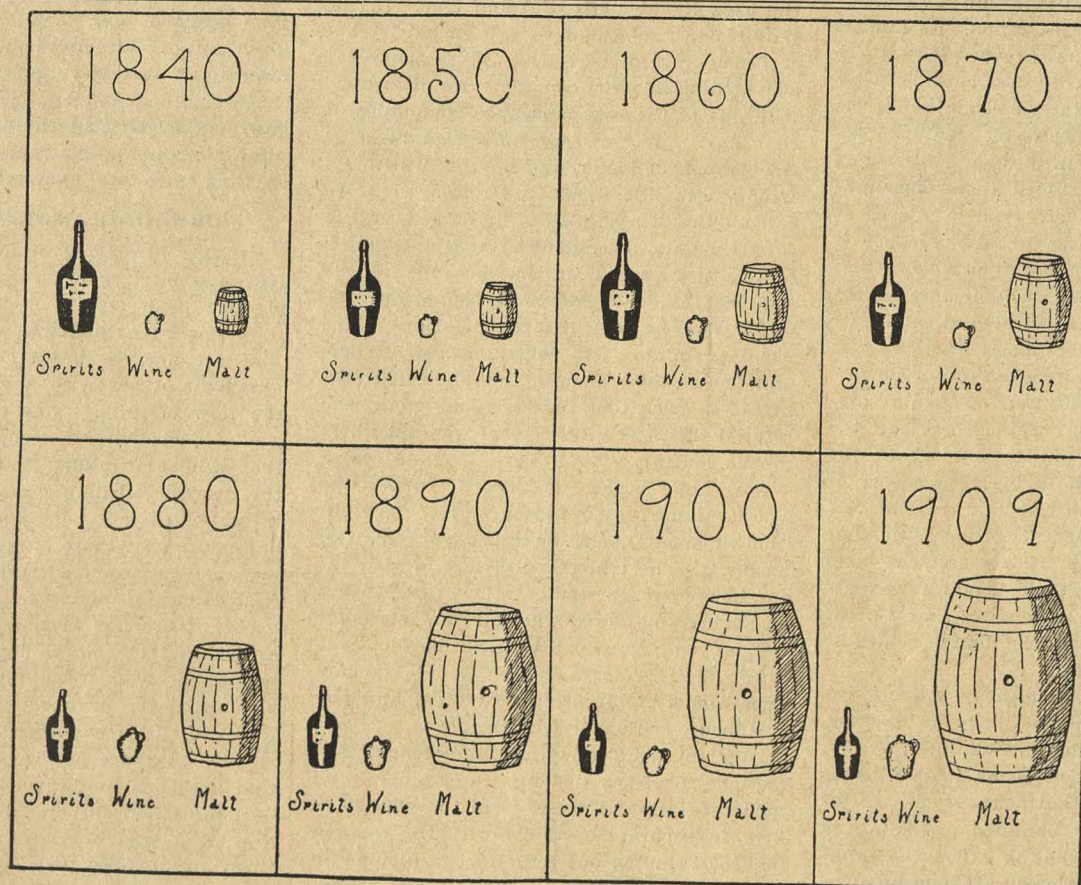 1840
Spirits Wine Malt
1850
Spirits Wine Malt
1860
Spirits Wine Malt
1870
Spirits Wine Malt
1880
Spirits Wine Malt
1890
Spirits Wine Malt
1900
Spirits Wine Malt
1909
Spirits Wine Malt